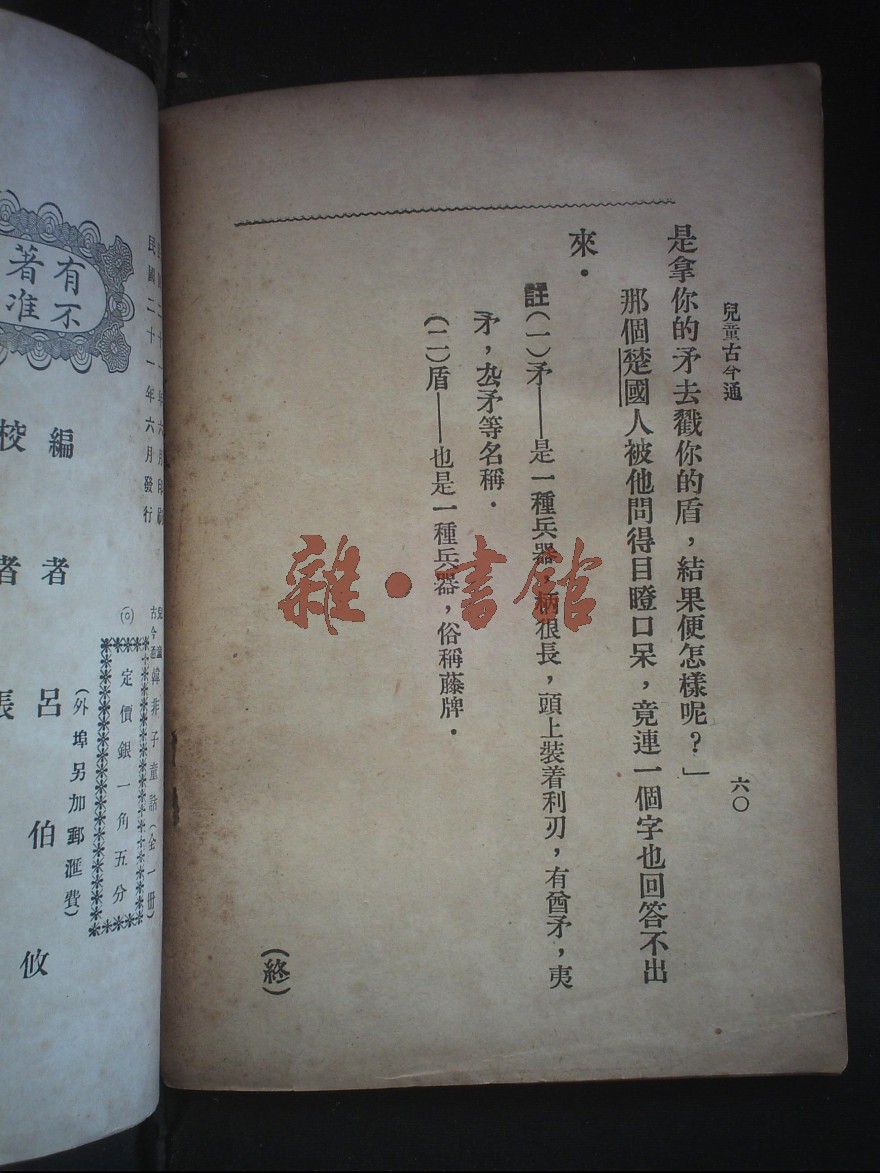 兒童古今通
六〇
是拿你的矛去戳你的盾，結果便怎樣呢？」
那個楚國人被他問得目瞪口呆，竟連一個字也回答不出
來．
註(一)矛——是一種兵器，柄很長，頭上裝着利刃，有酋矛，夷
矛，厹矛等名稱．
(二)盾——也是一種兵器，俗稱藤牌．
(終)
雜·書館
民國二十一年六月印刷
民國二十一年六月發行
兒童古今通 韓非子童話(全一册)
(◎)定價銀一角五分
(外埠另加郵滙費)
有不
著准
編者 呂伯攸
校者 張